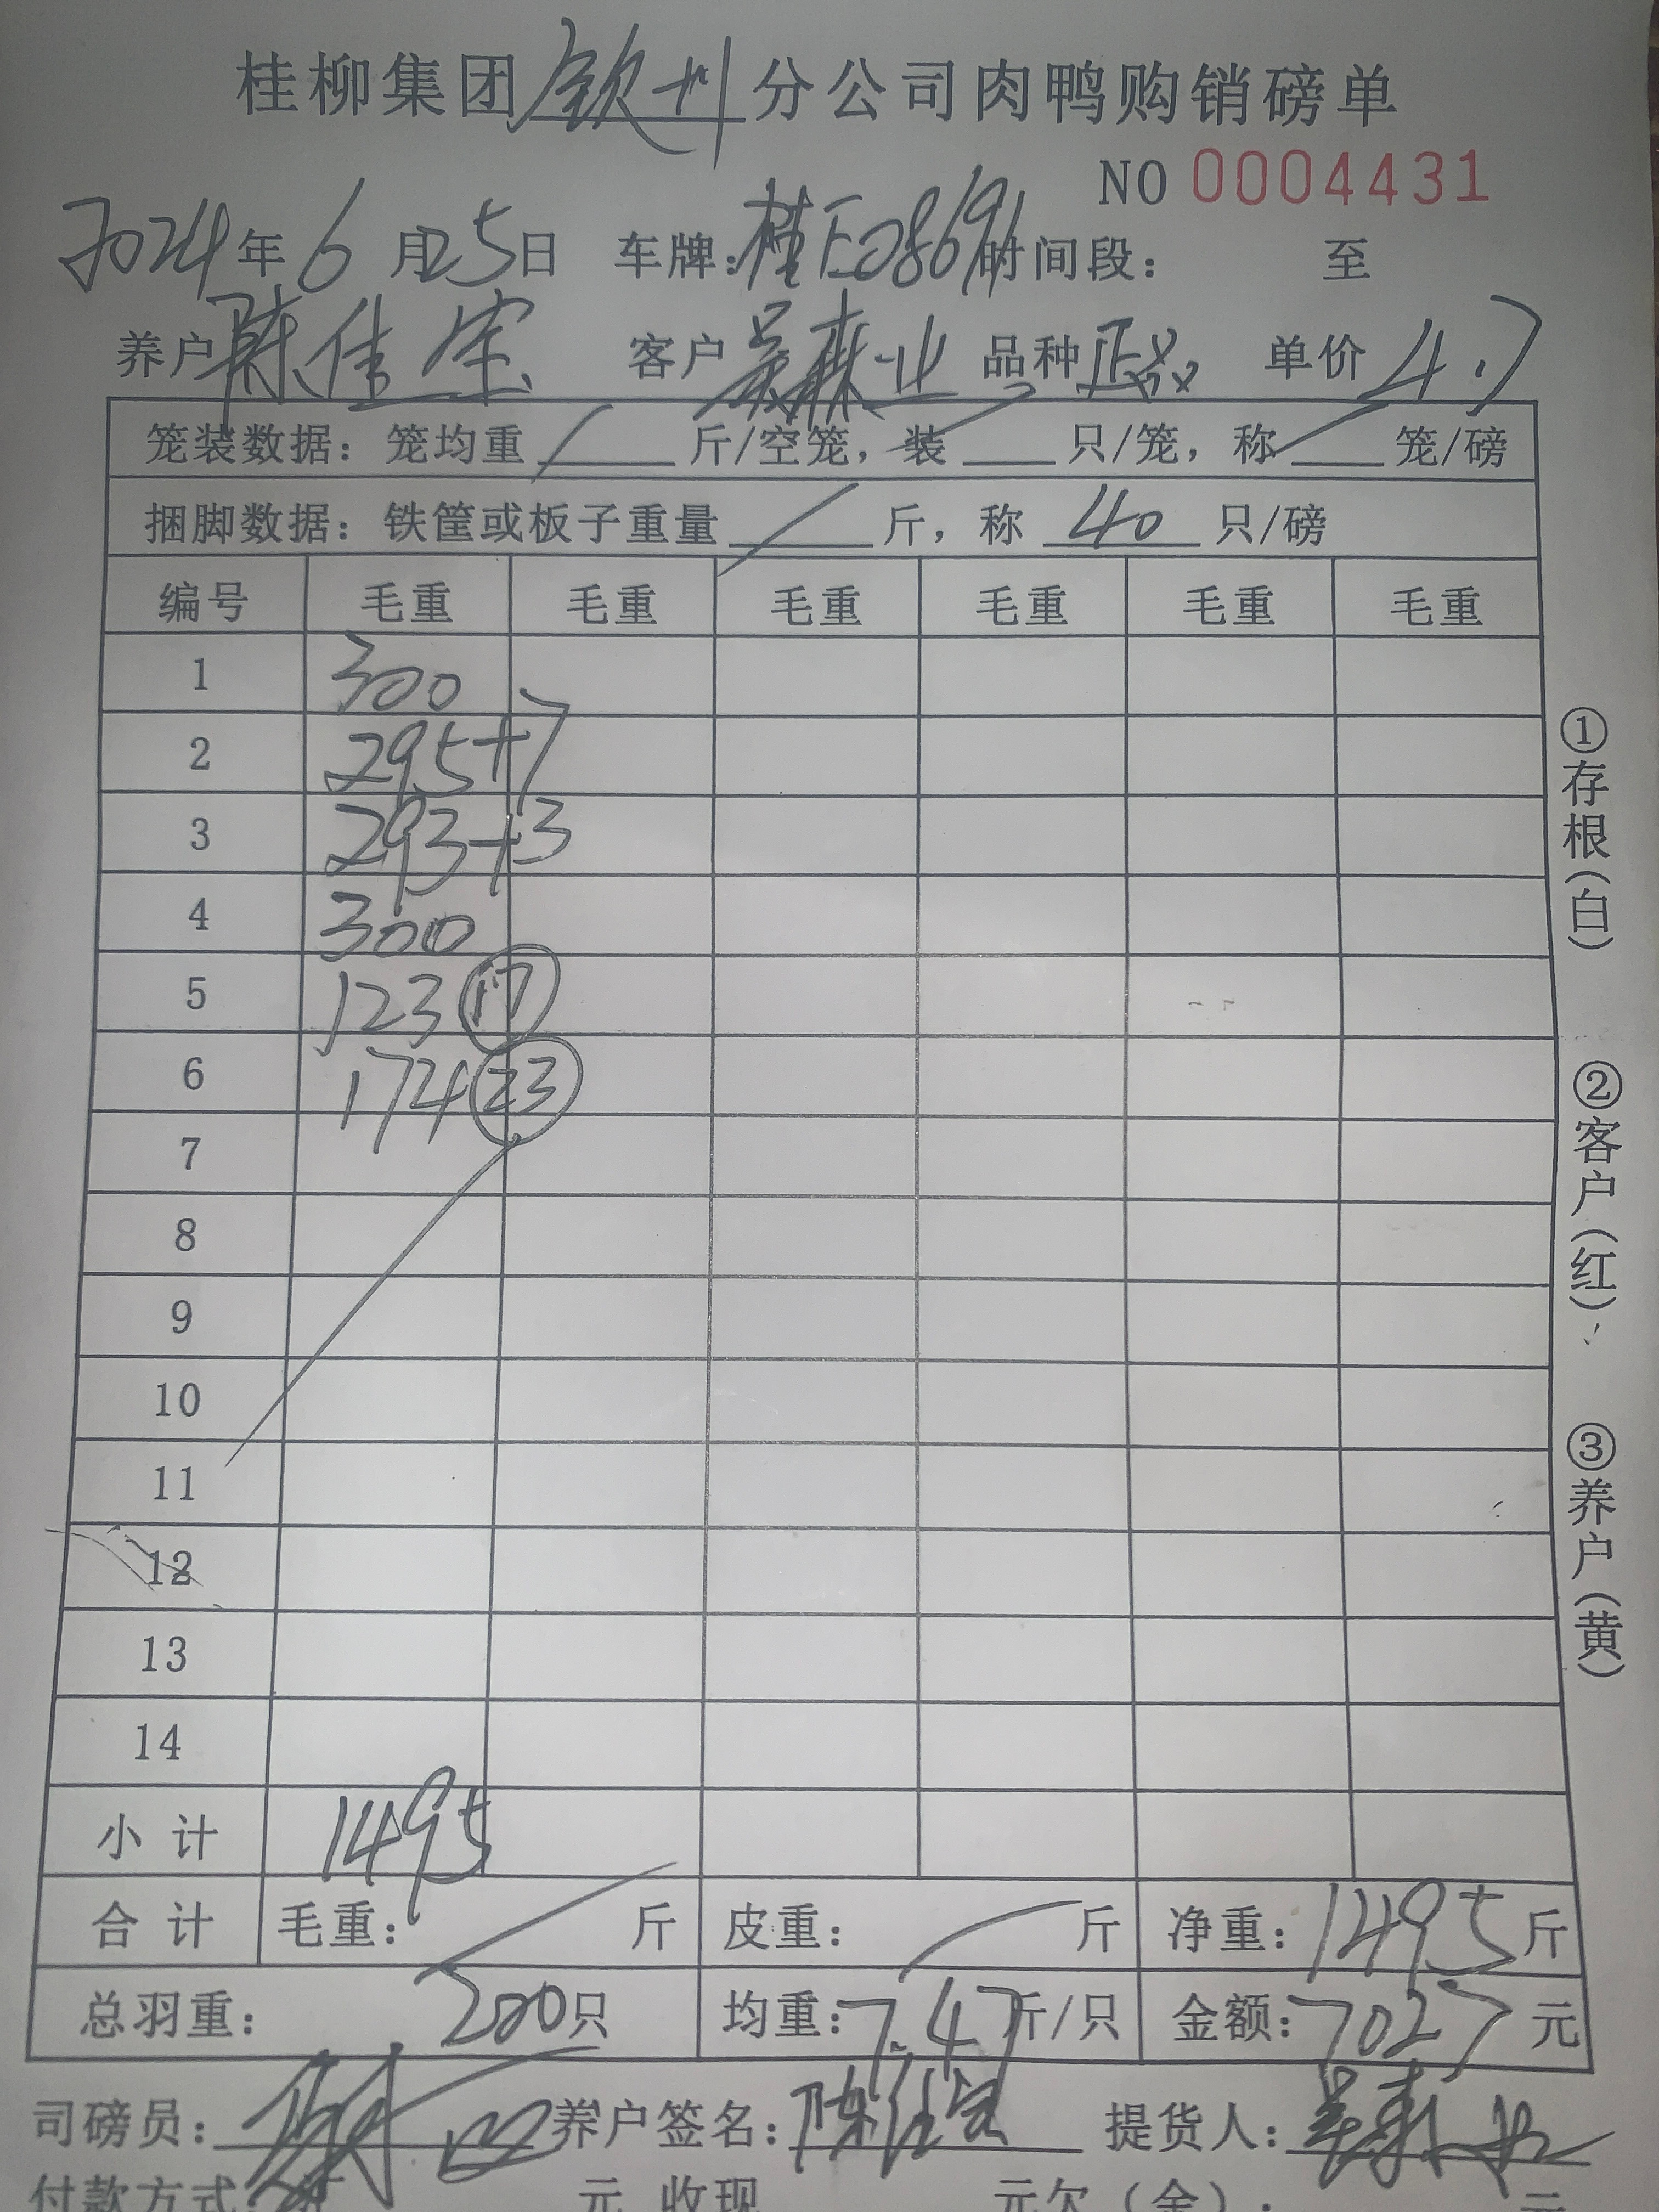 桂柳集团钦州分公司肉鸭购销磅单
NO 0004431
2024年6月25日 车牌:桂E08691 时间段: 至
养户 陈佳宝 客户 吴森业 品种 正品 单价 4.7
笼装数据: 笼均重 / 斤/空笼, 装 / 只/笼, 称 / 笼/磅
捆脚数据: 铁筐或板子重量 / 斤, 称 40 只/磅
编号 毛重 毛重 毛重 毛重 毛重 毛重
1 300
2 295+7
3 293+3
4 300
5 123 17
6 174 23
7
8
9
10
11
12
13
14
小计 1495
合计 毛重: / 斤 皮重: / 斤 净重: 1495 斤
总羽重: 200只 均重: 7.47斤/只 金额: 7027 元
司磅员: 养户签名: 陈佳宝 提货人: 吴森业
付款方式: 元 收现 元欠(余): 元
①存根(白) ②客户(红) ③养户(黄)